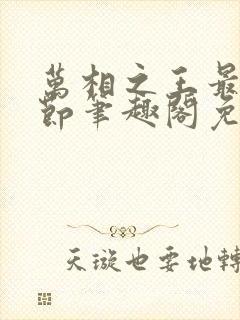 萬相之王最
節筆趣閣免
天璇也要地轉